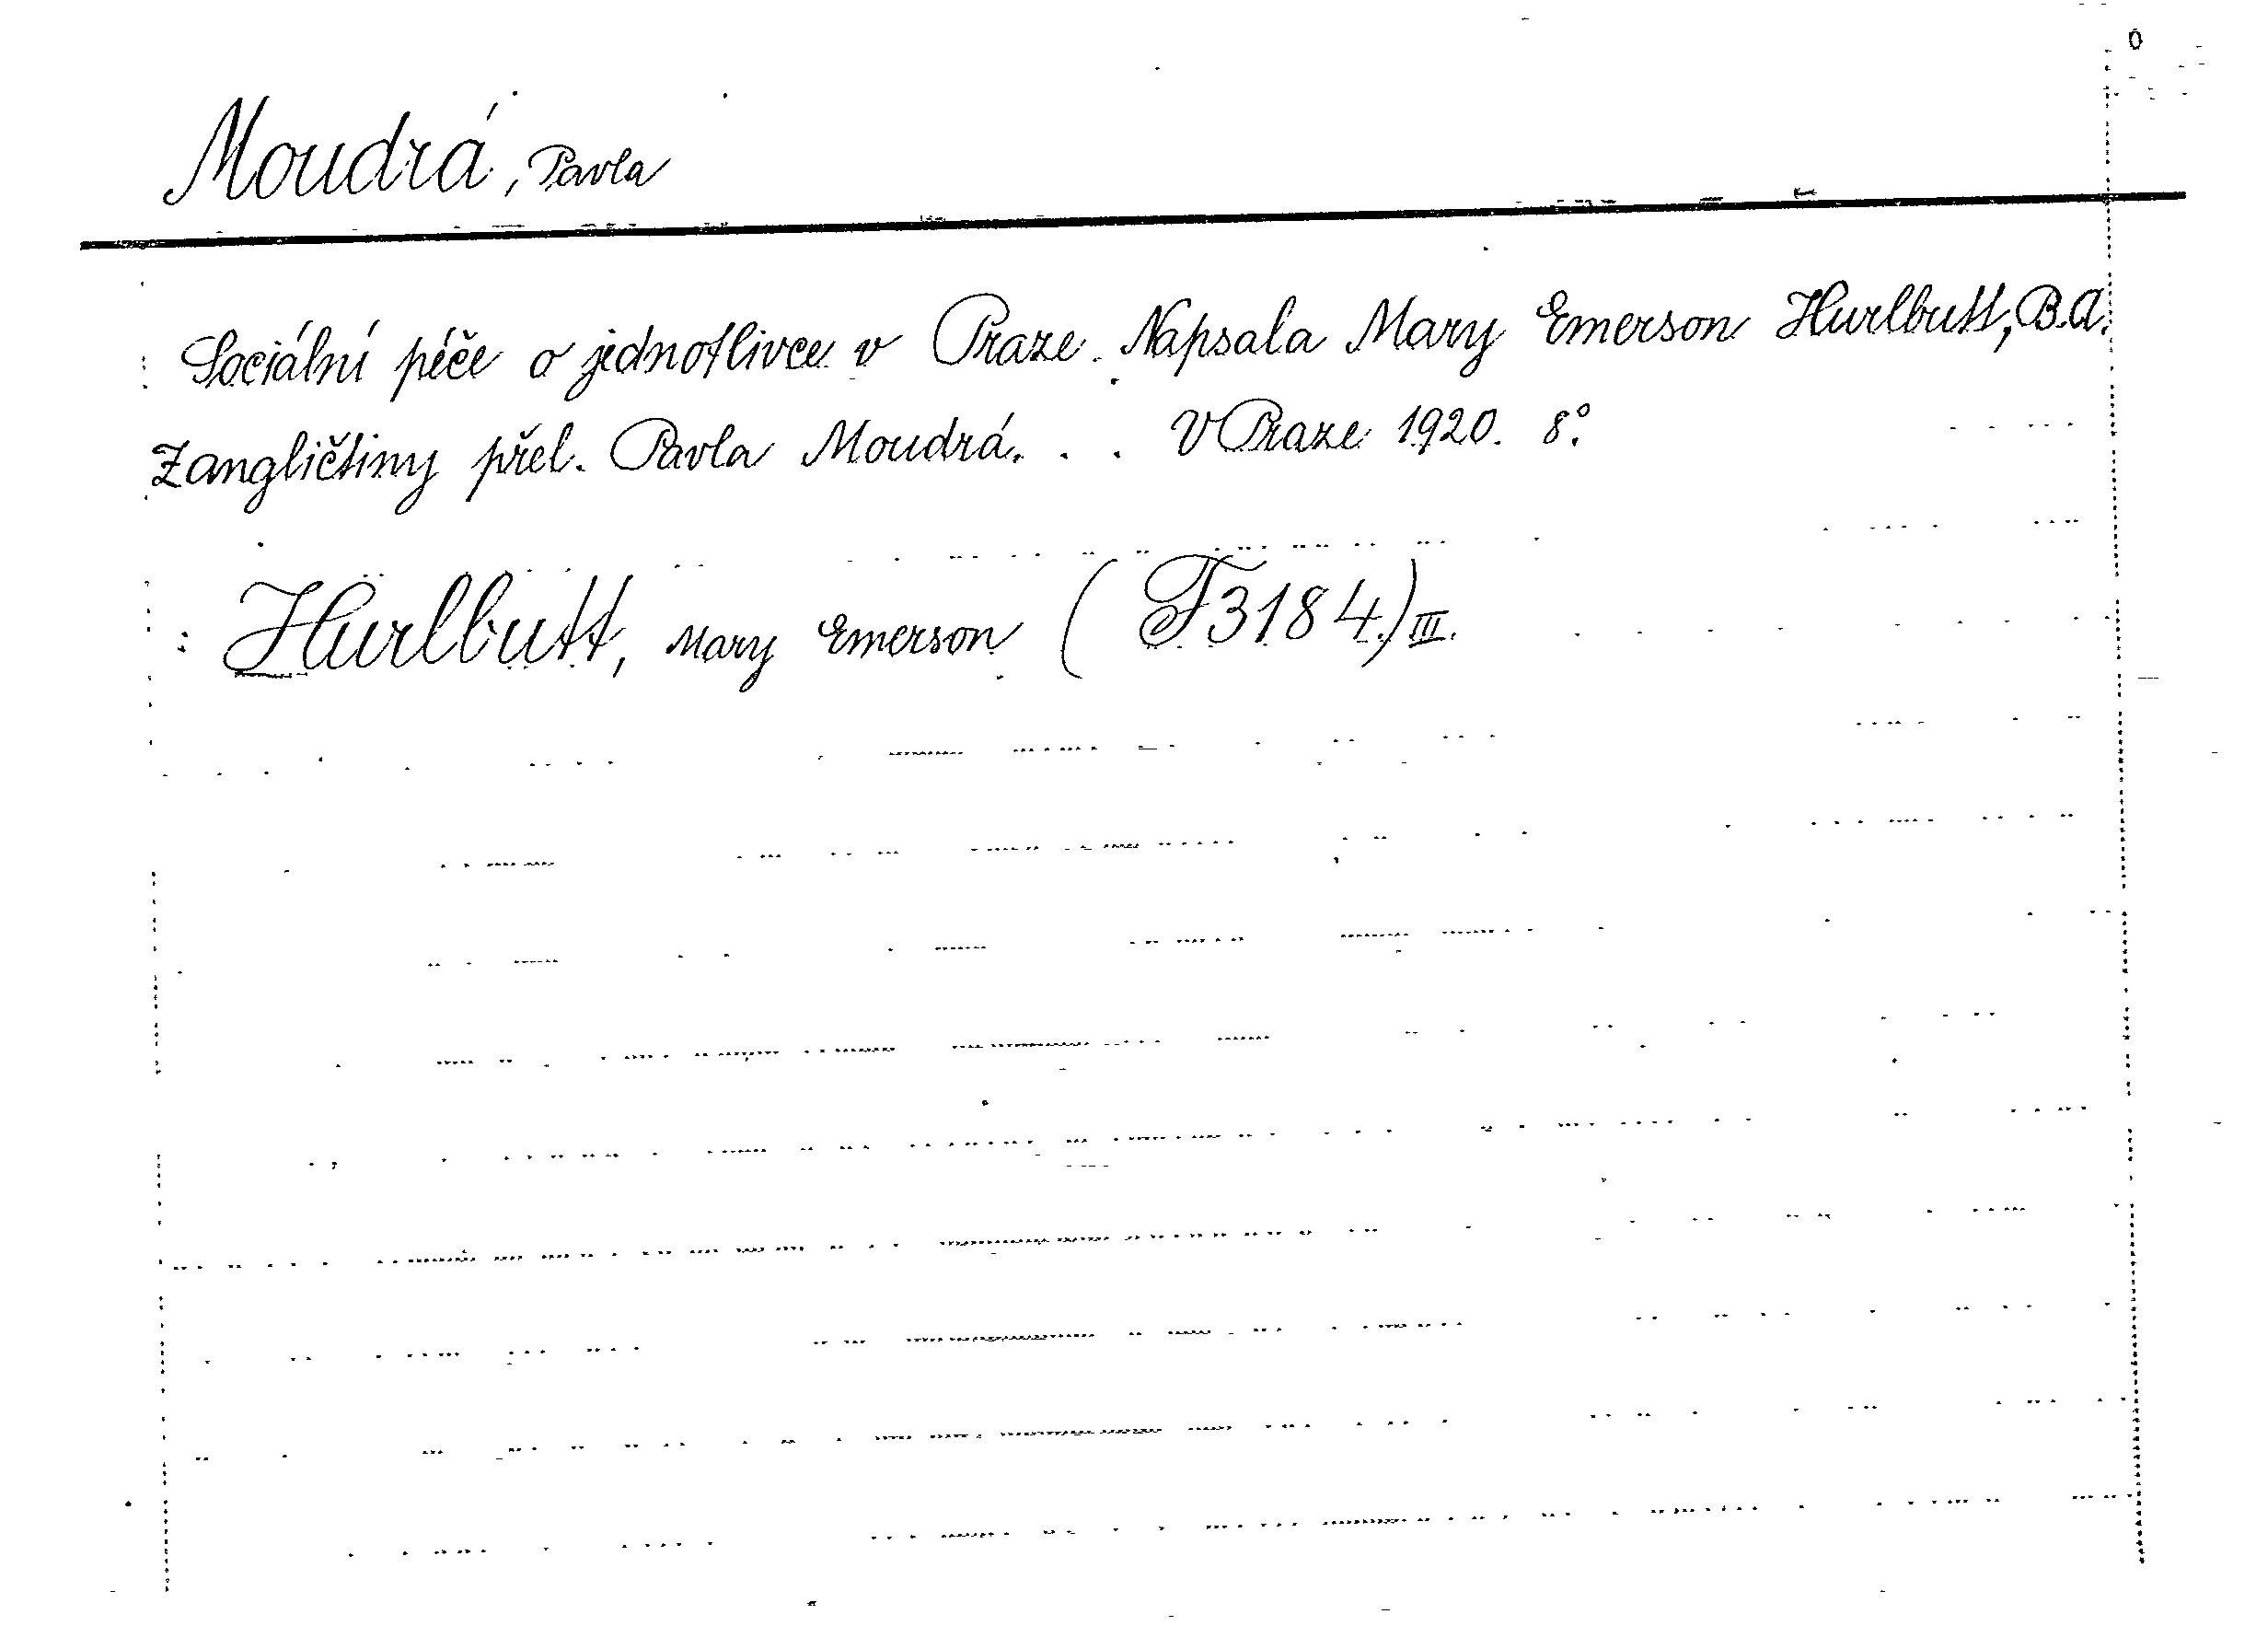 Moudrá, Pavla
Sociální péče o jednotlivce v Praze. Napsala Mary Emerson Hurlbutt, B.A.
Z angličtiny přel. Pavla Moudrá. . . V Praze 1920. 8°.
: Hurlbutt, Mary Emerson (F 3184.) III.